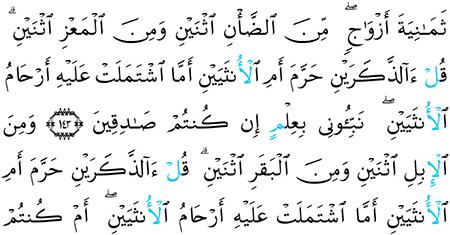 ثَمَٰنِيَةَ أَزْوَٰجٍۖ مِّنَ ٱلضَّأْنِ ٱثْنَيْنِ وَمِنَ ٱلْمَعْزِ ٱثْنَيْنِۗ
قُلْ ءَآلذَّكَرَيْنِ حَرَّمَ أَمِ ٱلْأُنثَيَيْنِ أَمَّا ٱشْتَمَلَتْ عَلَيْهِ أَرْحَامُ
ٱلْأُنثَيَيْنِۖ نَبِّـُٔونِى بِعِلْمٍ إِن كُنتُمْ صَٰدِقِينَ ١٤٣ وَمِنَ
ٱلْإِبِلِ ٱثْنَيْنِ وَمِنَ ٱلْبَقَرِ ٱثْنَيْنِۗ قُلْ ءَآلذَّكَرَيْنِ حَرَّمَ أَمِ
ٱلْأُنثَيَيْنِ أَمَّا ٱشْتَمَلَتْ عَلَيْهِ أَرْحَامُ ٱلْأُنثَيَيْنِۖ أَمْ كُنتُمْ